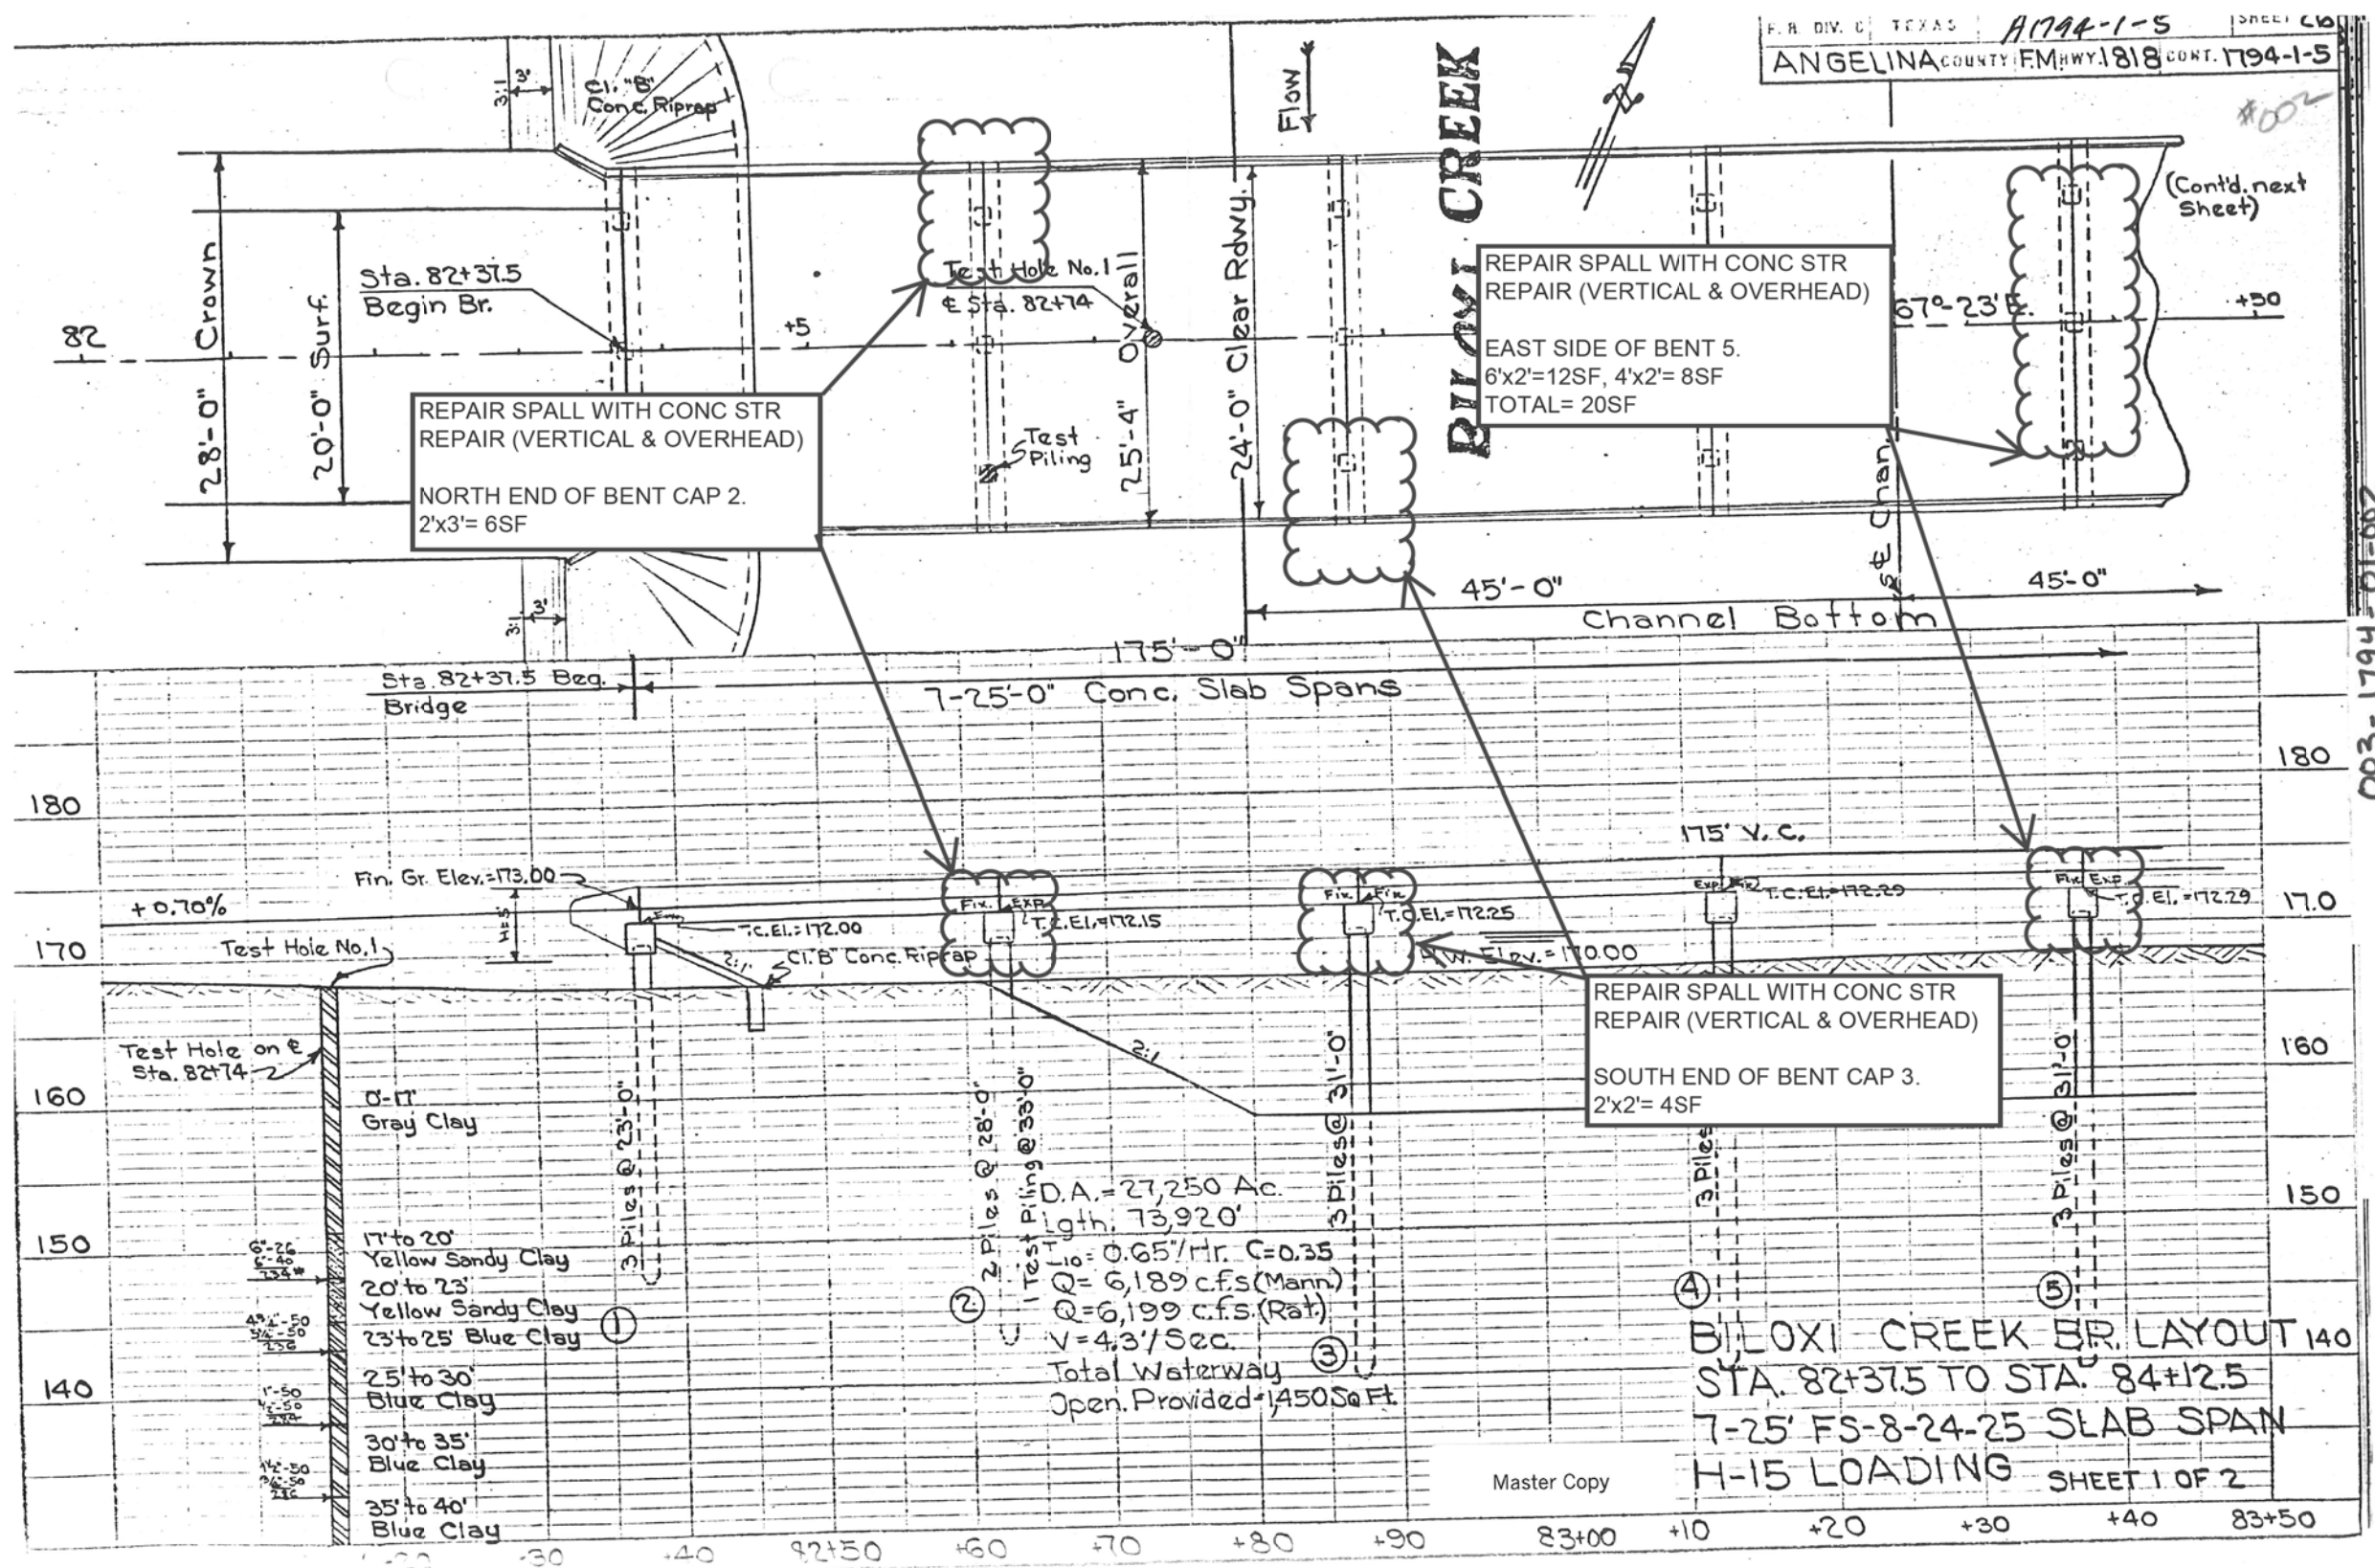 F. R. DIV. C TEXAS A1794-1-5 SHEET 26
ANGELINA COUNTY F.M. HWY. 1818 CONT. 1794-1-5
#002
3:1
3'
Cl. "B"
Conc. Riprap
Flow
BILOXI CREEK
(Cont'd. next
Sheet)
28'-0" Crown
20'-0" Surf.
Sta. 82+37.5
Begin Br.
82
+5
Test Hole No. 1
℄ Sta. 82+74
25'-4" Overall
24'-0" Clear Rdwy.
67°-23'E.
+50
REPAIR SPALL WITH CONC STR
REPAIR (VERTICAL & OVERHEAD)
EAST SIDE OF BENT 5.
6'x2'=12SF, 4'x2'= 8SF
TOTAL= 20SF
REPAIR SPALL WITH CONC STR
REPAIR (VERTICAL & OVERHEAD)
NORTH END OF BENT CAP 2.
2'x3'= 6SF
Test
Piling
℄ Chan.
3:1
3'
45'-0"
45'-0"
Channel Bottom
003-1794-01-002
175'-0"
Sta. 82+37.5 Beg.
Bridge
7-25'-0" Conc. Slab Spans
180
180
175' V. C.
Fin. Gr. Elev.=173.00
+0.70%
H=5'
T.C.El.=172.00
Fix. Exp.
T.C.El.=172.15
Fix. Fix.
T.C.El.=172.25
Exp. Fix.
T.C.El.=172.29
Fix. Exp.
T.C.El.=172.29
170
170
Test Hole No. 1
2:1
Cl. "B" Conc. Riprap
Elev.=170.00
REPAIR SPALL WITH CONC STR
REPAIR (VERTICAL & OVERHEAD)
SOUTH END OF BENT CAP 3.
2'x2'= 4SF
Test Hole on ℄
Sta. 82+74
2:1
160
160
0'-17'
Gray Clay
3 Piles @ 23'-0"
2 Piles @ 28'-0"
1 Test Piling @ 33'-0"
3 Piles @ 31'-0"
3 Piles
3 Piles @ 31'-0"
D.A.=27,250 Ac.
Lgth. 73,920'
I10=0.65"/Hr. C=0.35
Q= 6,189 c.f.s.(Mann.)
Q=6,199 c.f.s.(Rat.)
V=4.3'/Sec.
Total Waterway
Open. Provided=1,450 Sq Ft.
150
150
17' to 20'
Yellow Sandy Clay
20' to 23'
Yellow Sandy Clay
23' to 25' Blue Clay
25' to 30'
Blue Clay
30' to 35'
Blue Clay
35' to 40'
Blue Clay
1
2
3
4
5
140
140
BILOXI CREEK BR. LAYOUT
STA. 82+37.5 TO STA. 84+12.5
7-25' FS-8-24-25 SLAB SPAN
H-15 LOADING SHEET 1 OF 2
Master Copy
+30 +40 82+50 +60 +70 +80 +90 83+00 +10 +20 +30 +40 83+50